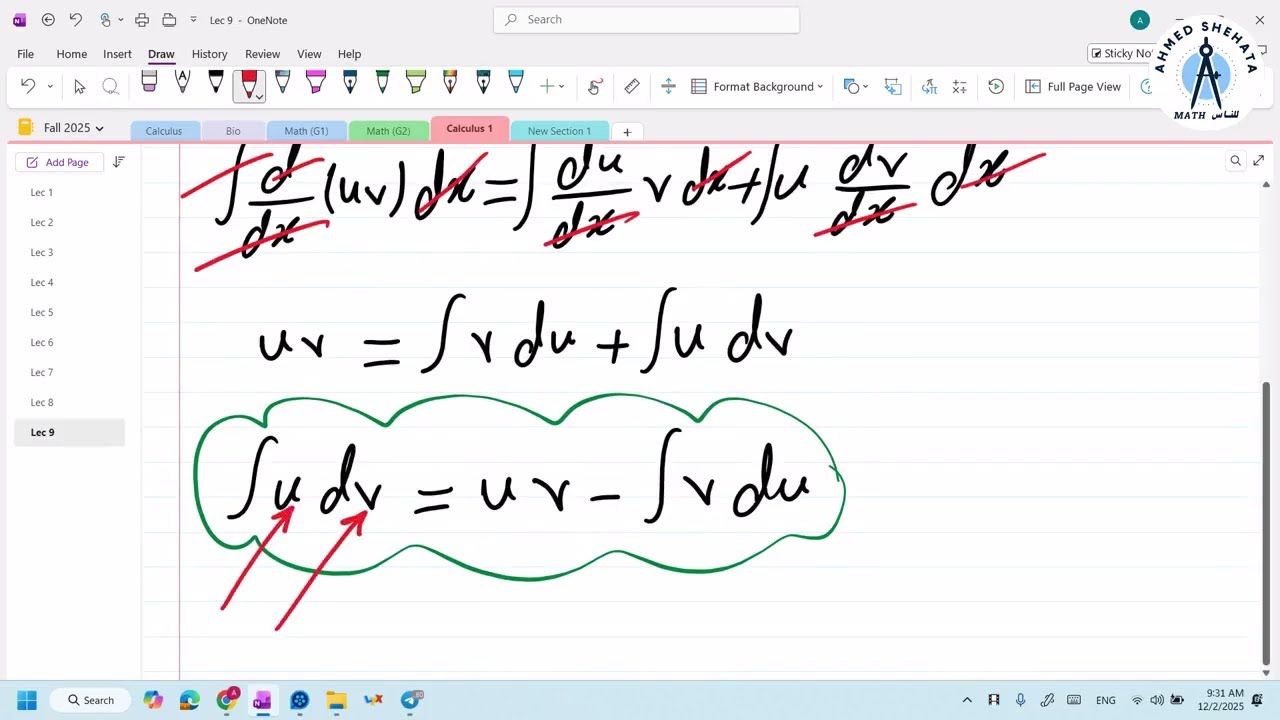 Lec 9 - OneNote
Search
A
AHMED SHEHATA
MATH للناس
File Home Insert Draw History Review View Help
Sticky No
Format Background
Full Page View
Fall 2025
Calculus
Bio
Math (G1)
Math (G2)
Calculus 1
New Section 1
+
Add Page
Lec 1
Lec 2
Lec 3
Lec 4
Lec 5
Lec 6
Lec 7
Lec 8
Lec 9
∫ d/dx (uv) dx = ∫ du/dx v dx + ∫ u dv/dx dx
uv = ∫ v du + ∫ u dv
∫ u dv = u v - ∫ v du
Search
ENG
9:31 AM
12/2/2025